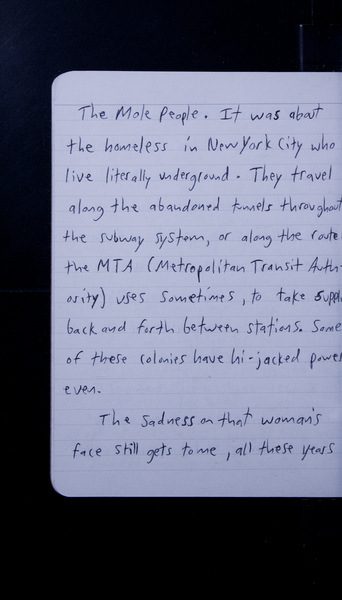 The Mole People. It was about
the homeless in New York City who
live literally underground. They travel
along the abandoned tunnels throughout
the subway system, or along the route
the MTA (Metropolitan Transit Auth-
ority) uses sometimes, to take suppl
back and forth between stations. Some
of these colonies have hi-jacked power
even.
The sadness on that woman's
face still gets to me, all these years